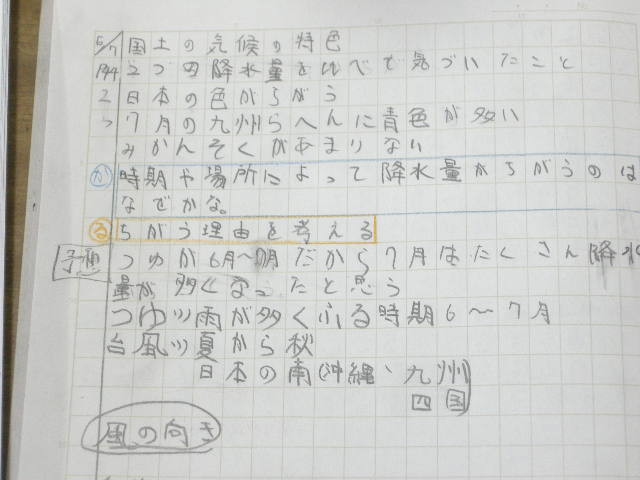 5/7 国土の気候の特色
P44 2つの降水量を比べて気づいたこと
2 日本の色がちがう
つ 7月の九州らへんに青色が多い
みかんそくがあまりない
か 時期や場所によって降水量がちがうのは
なぜかな。
る ちがう理由を考える
予想 つゆが6月〜7月だから7月はたくさん降水
量が多くなったと思う
つゆ⇒雨が多くふる時期6〜7月
台風⇒夏から秋
日本の南(沖縄、九州
四国
風の向き